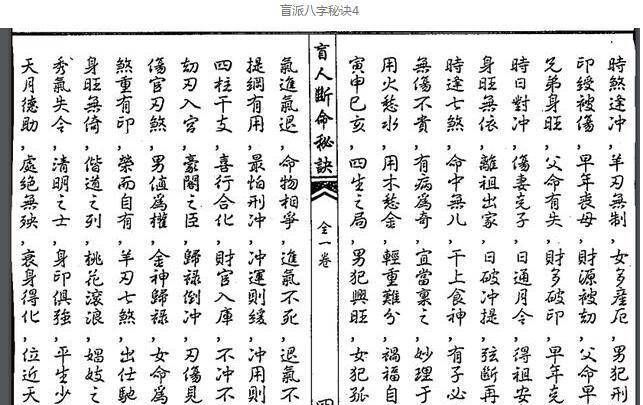 盲派八字秘诀4
時煞逢冲,羊刃無制,女多產厄,男犯刑
印綬被傷,早年喪母,財源被劫,父命早
兄弟身旺,父命有失,財多破印,早年克
時日對冲,傷妻克子,日通月令,得祖安
身旺無依,離祖出家,日破冲提,弦斷再
時逢七煞,命中無兒,干上食神,有子必
無傷不貴,有病為奇,宜當裏之,妙理于
用火愁水,用木愁金,輕重難分,禍福自
寅申巳亥,四生之局,男犯興旺,女犯孤
盲人斷命秘訣
全一卷
四
氣進氣退,命物相爭,進氣不死,退氣不
提綱有用,最怕刑冲,冲運則緩,冲用則
四柱干支,喜行合化,財官入庫,不冲不
劫刃入宮,豪閣之臣,歸祿倒冲,刃傷見
傷官刃煞,男值為權,金神歸祿,女命為
煞重有印,榮而自有,羊刃七煞,出仕馳
身旺無倚,偕道之列,桃花滾浪,娼妓之
秀氣失令,清明之士,身印俱強,平生少
天月德助,處絕無殃,衰身得化,位近天